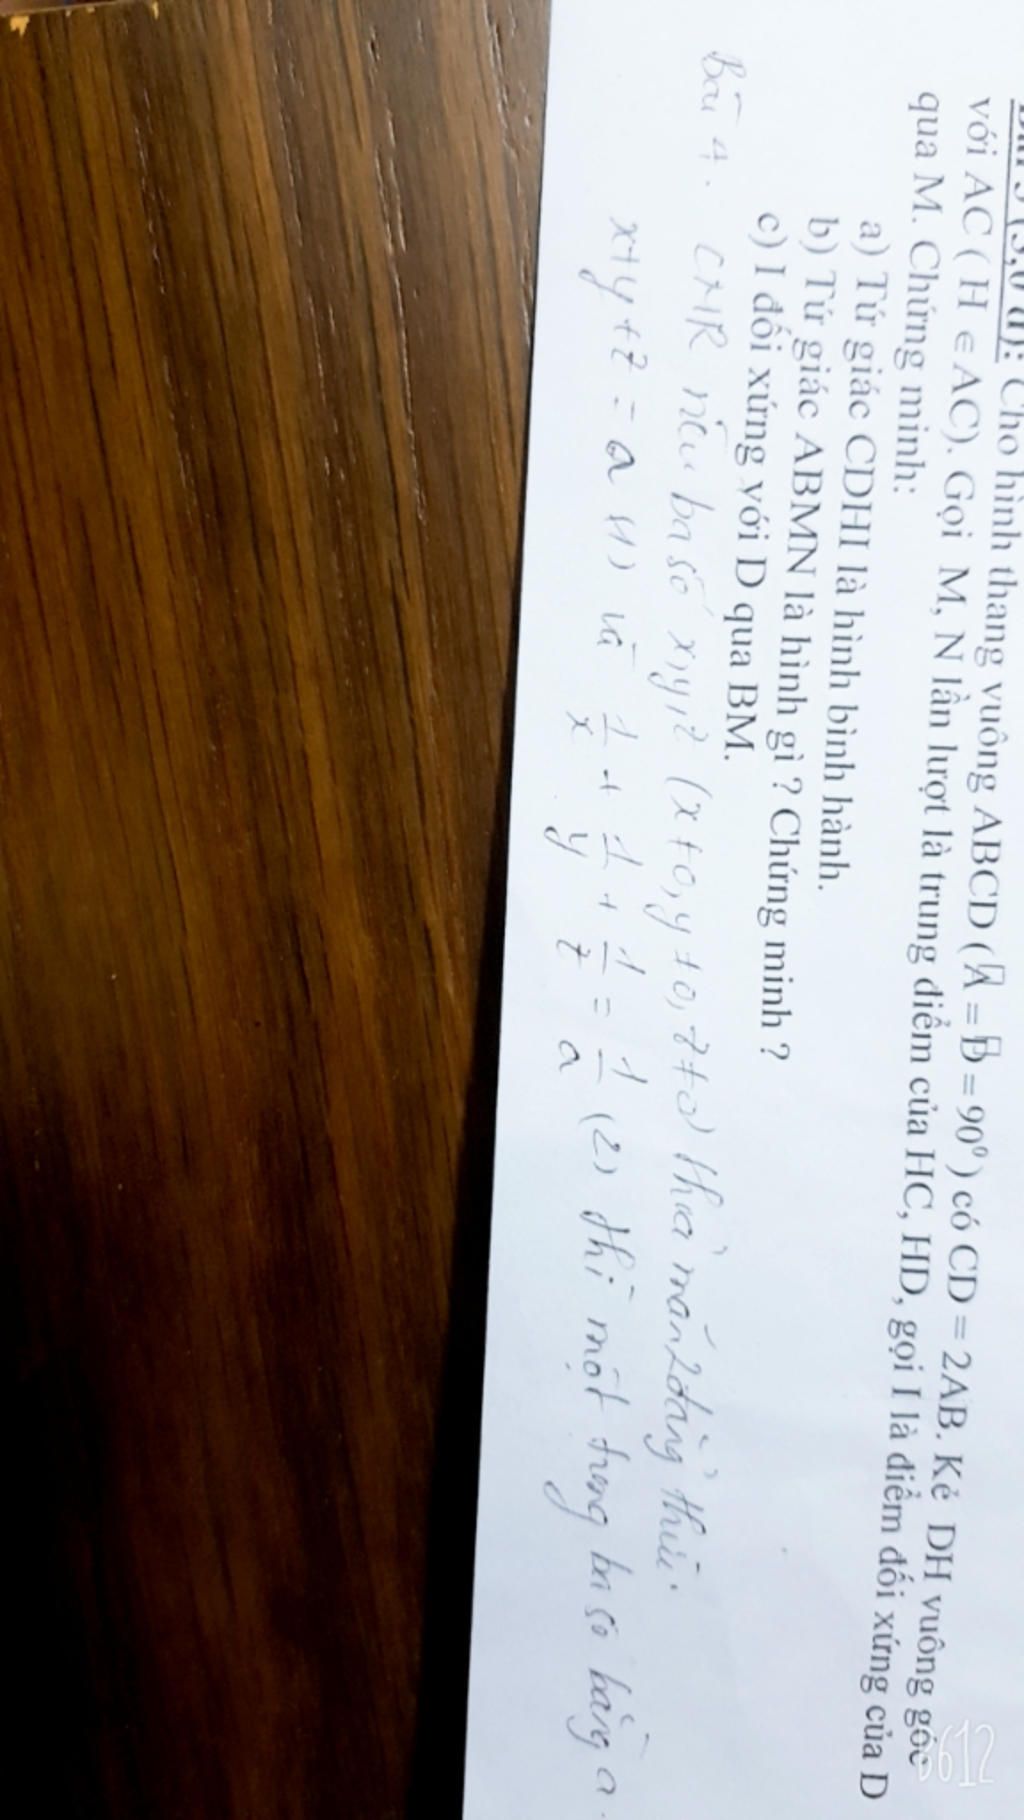 Bài 3 (3,0 đ): Cho hình thang vuông ABCD ( A = D = 90⁰ ) có CD = 2AB. Kẻ DH vuông góc
với AC ( H ∈ AC). Gọi M, N lần lượt là trung điểm của HC, HD, gọi I là điểm đối xứng của D
qua M. Chứng minh:
a) Tứ giác CDHI là hình bình hành.
b) Tứ giác ABMN là hình gì ? Chứng minh ?
c) I đối xứng với D qua BM.
Bài 4. CMR nếu ba số x, y, z (x ≠ 0, y ≠ 0, z ≠ 0) thỏa mãn 2 đẳng thức
x+y+z = a (1) và 1/x + 1/y + 1/z = 1/a (2) thì một trong ba số bằng a.
B612